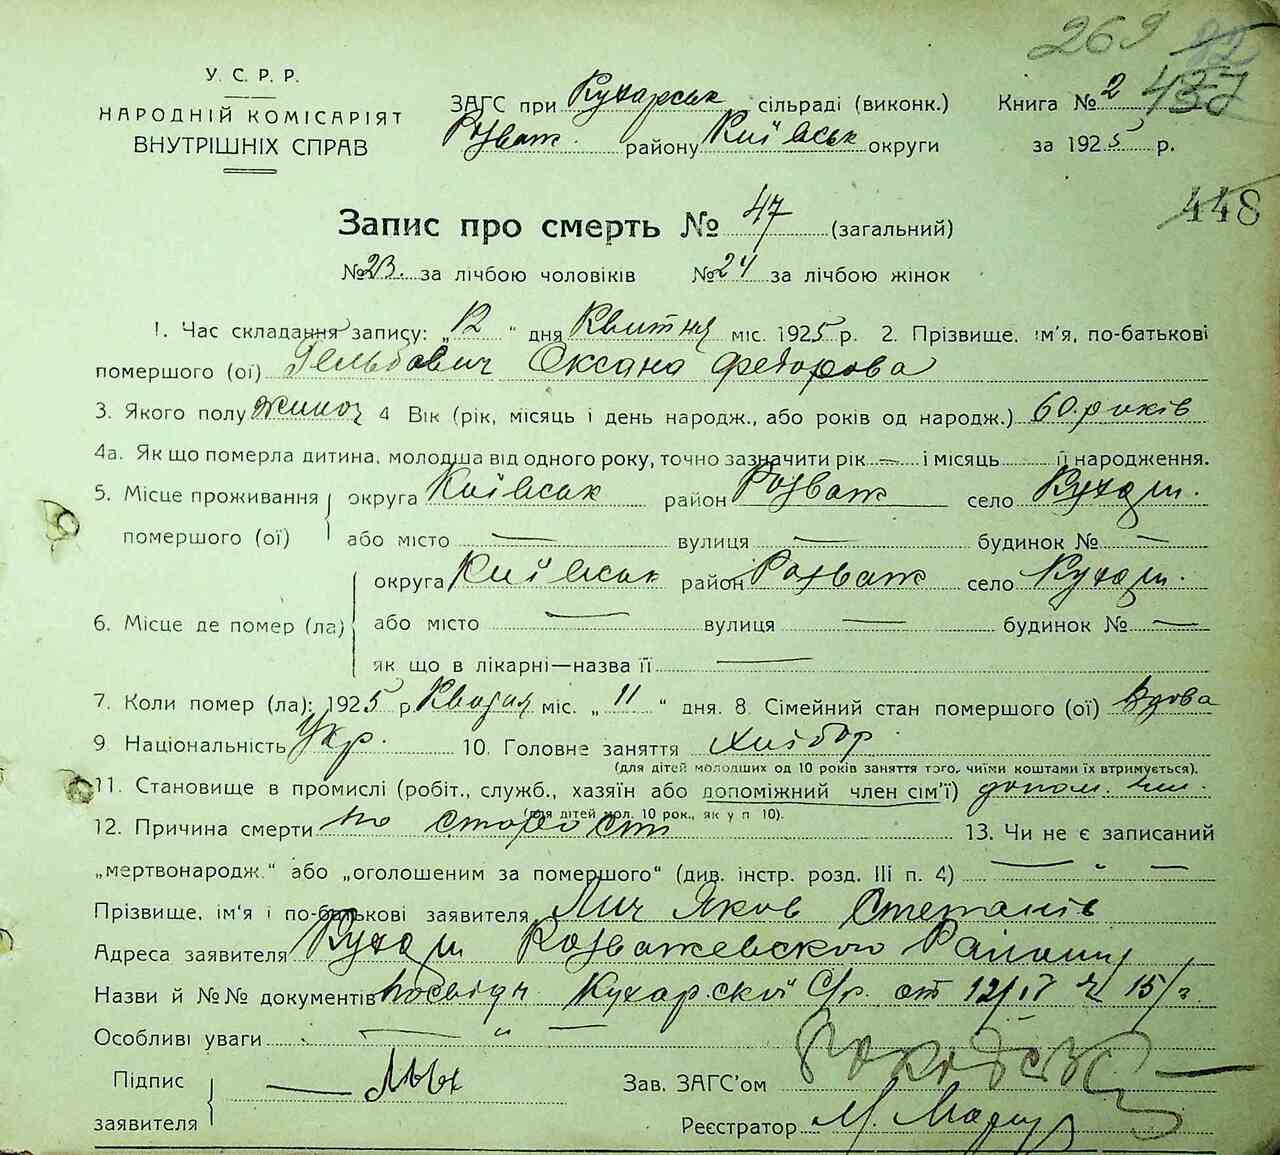 269 92
437
У. С. Р. Р.
НАРОДНІЙ КОМІСАРІЯТ
ВНУТРІШНІХ СПРАВ
ЗАГС при Кухарськ сільраді (виконк.) Книга № 2
Розваж. району Київськ округи за 1925 р.
448
Запис про смерть № 47 (загальний)
№ 23. за лічбою чоловіків № 24 за лічбою жінок
1. Час складання запису: „12" дня Квітня міс. 1925 р. 2. Прізвище, ім'я, по-батькові
помершого (ої) Гельбович Оксана Федорова
3. Якого полу жіноч 4 Вік (рік, місяць і день народж., або років од народж.) 60 років
4а. Як що померла дитина, молодша від одного року, точно зазначити рік — і місяць її народження.
5. Місце проживання округа Київськ район Розваж село Кухари.
помершого (ої) або місто — вулиця — будинок № —
округа Київськ район Розваж село Кухари.
6. Місце де помер (ла) або місто — вулиця — будинок № —
як що в лікарні—назва її —
7. Коли помер (ла): 1925 р. Квітня міс. „11" дня. 8. Сімейний стан помершого (ої) Вдова
9. Національність Укр. 10. Головне заняття хлібор.
(для дітей молодших од 10 років заняття того, чиїми коштами їх втримується).
11. Становище в промислі (робіт., служб., хазяїн або допоміжний член сім'ї) допом. чл.
(для дітей мол. 10 рок., як у п 10).
12. Причина смерти по старости 13. Чи не є записаний
„мертвонародж." або „оголошеним за помершого" (див. інстр. розд. III п. 4) — " —
Прізвище, ім'я і по-батькові заявителя Лич Яков Степанів
Адреса заявителя Кухари Розважевского Району
Назви й №№ документів посвідч Кухарской С/р. от 12/IV № 15/
Особливі уваги — " —
Підпис — Лыч Зав. ЗАГС'ом
заявителя Реєстратор М.